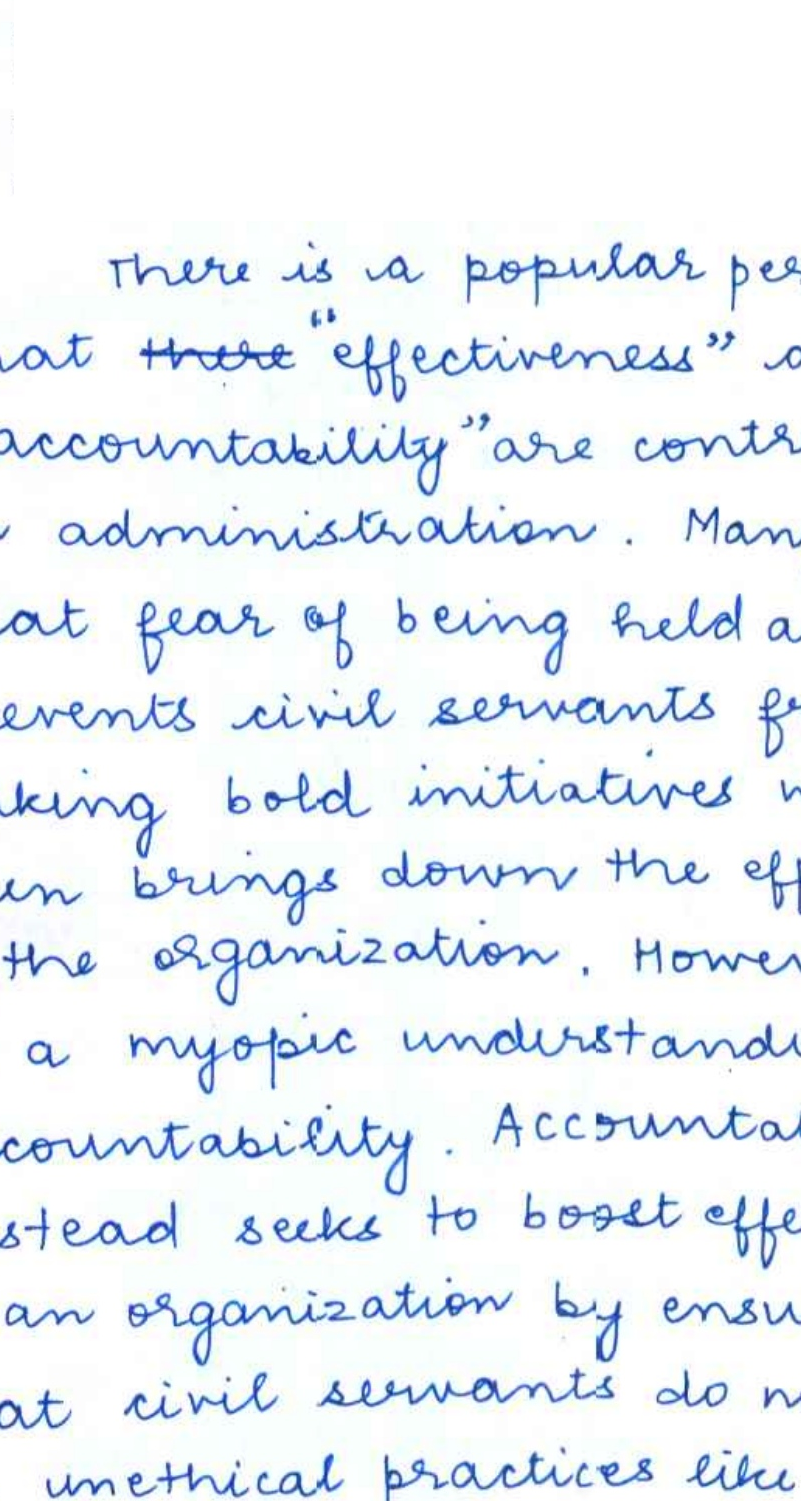 There is a popular pe
at there "effectiveness"
accountability" are contr
administration. Man
at fear of being held a
events civil servants fr
king bold initiatives
en brings down the eff
the organization. Howev
a myopic understandi
countability. Accounta
stead seeks to boost effe
an organization by ensu
at civil servants do n
unethical practices like